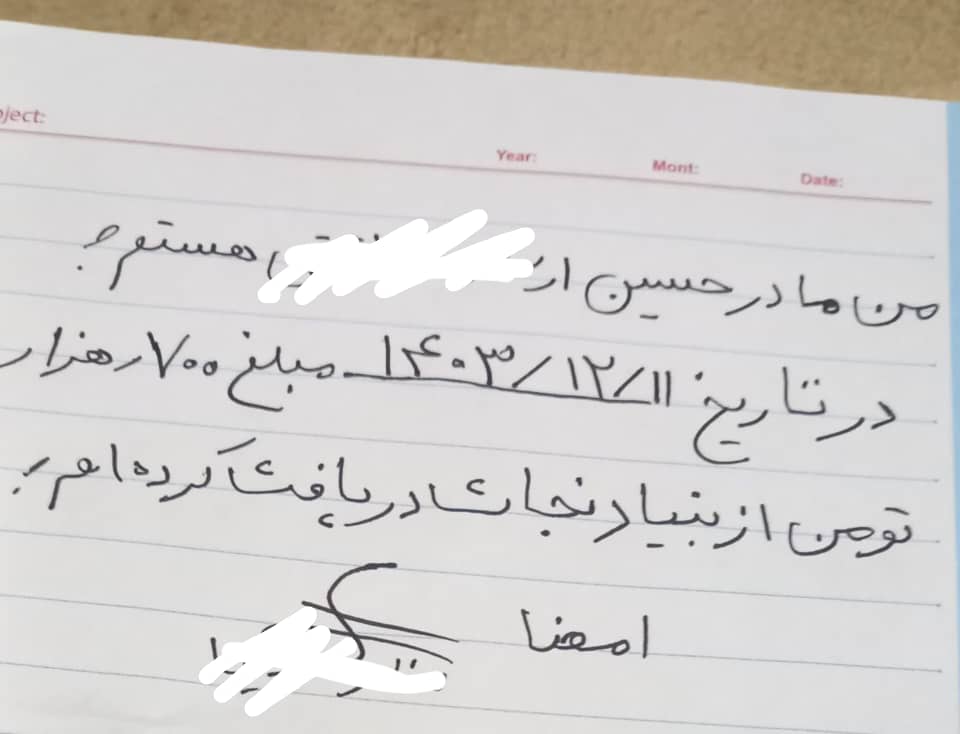 ject:
Year: Mont: Date:
من مادر حسین از هستم
در تاریخ ۱۴۰۳/۱۲/۱۱ مبلغ ۷۰۰ هزار
تومن از بنیاد نجات دریافت کرده ام
امضا